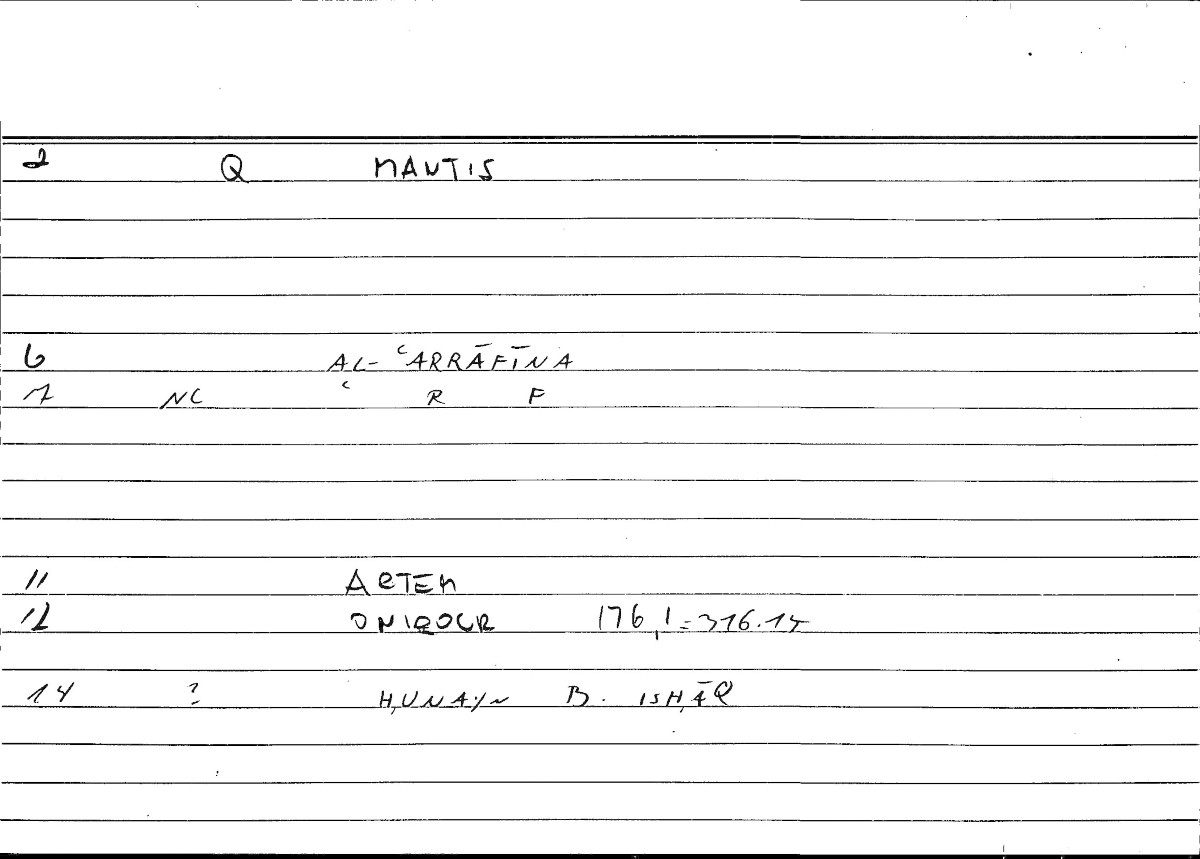 2 Q MANTIS
6 AL- ʿARRĀFĪNA
7 NC ʿ R F
11 ARTEM
12 ONIROCR 176,1=316.15
14 ? ḤUNAYN B. ISḤĀQ